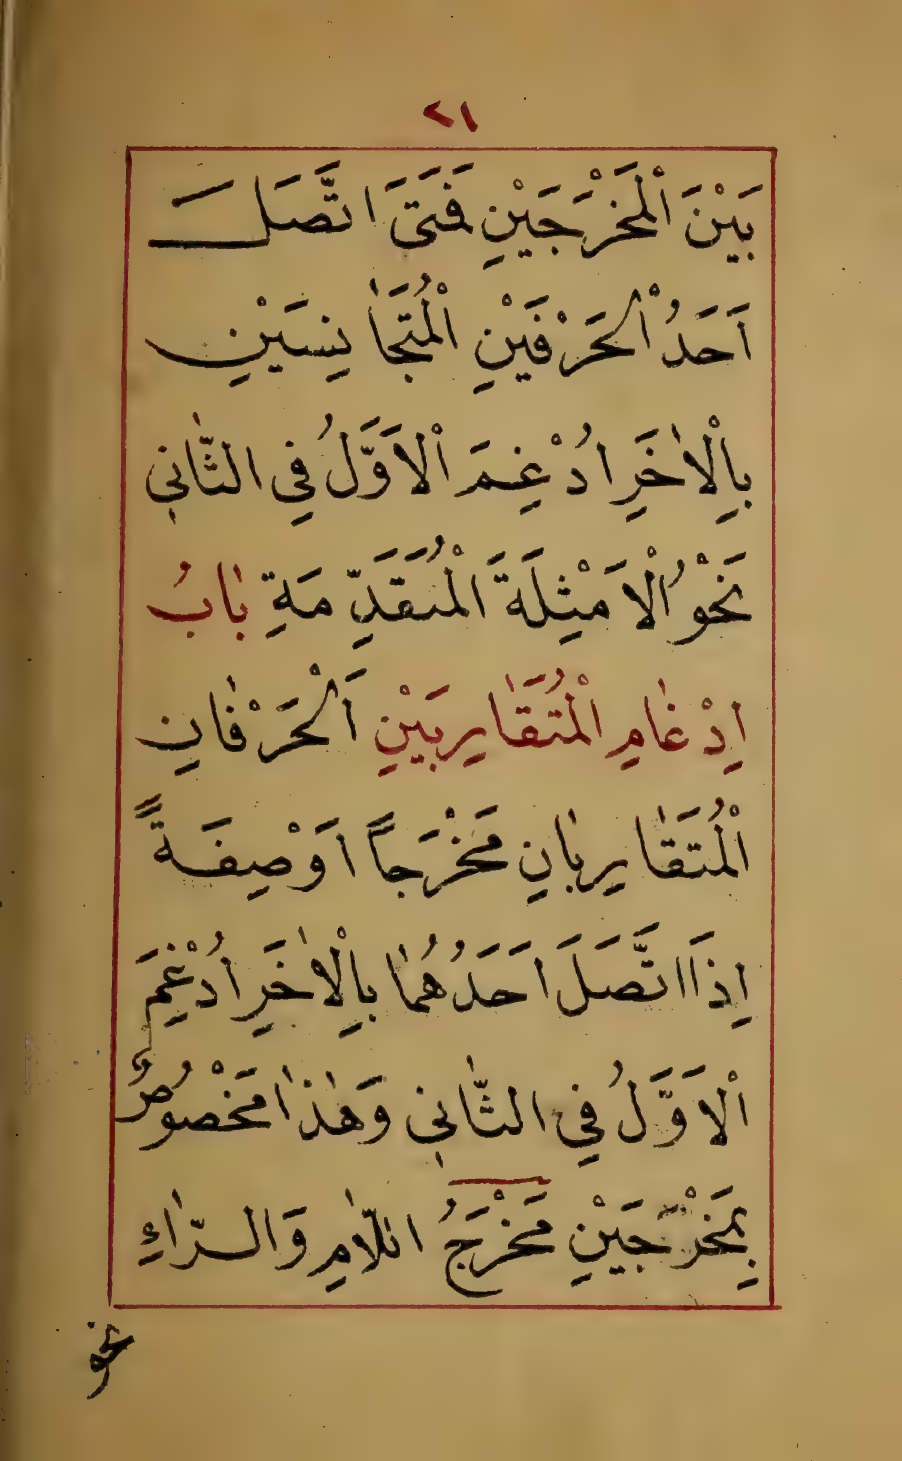 ٢١
بَيْنَ الْمَخْرَجَيْنِ فَمَتَى اتَّصَلَ
اَحَدُ الْحَرْفَيْنِ الْمُتَجَانِسَيْنِ
بِالْاٰخَرِ اُدْغِمَ الْاَوَّلُ فِى الثَّانِى
نَحْوُ الْاَمْثِلَةَ الْمُتَقَدِّمَةِ بَابُ
اِدْغَامِ الْمُتَقَارِبَيْنِ اَلْحَرْفَانِ
الْمُتَقَارِبَانِ مَخْرَجاً اَوْ صِفَةً
اِذَا اتَّصَلَ اَحَدُهُمَا بِالْاٰخَرِ اُدْغِمَ
الْاَوَّلُ فِى الثَّانِى وَهٰذَا مَخْصُوصٌ
بِمَخْرَجَيْنِ مَخْرَجُ اللَّامِ وَالرَّاءِ
نحو